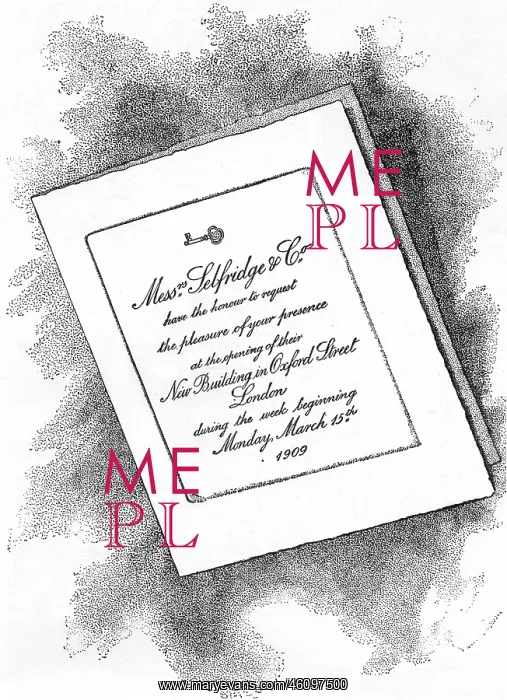 Messrs. Selfridge & Co.
have the honour to request
the pleasure of your presence
at the opening of their
New Building in Oxford Street
London
during the week beginning
Monday, March 15th
1909
ME
PL
ME
PL
www.maryevans.com/46097500